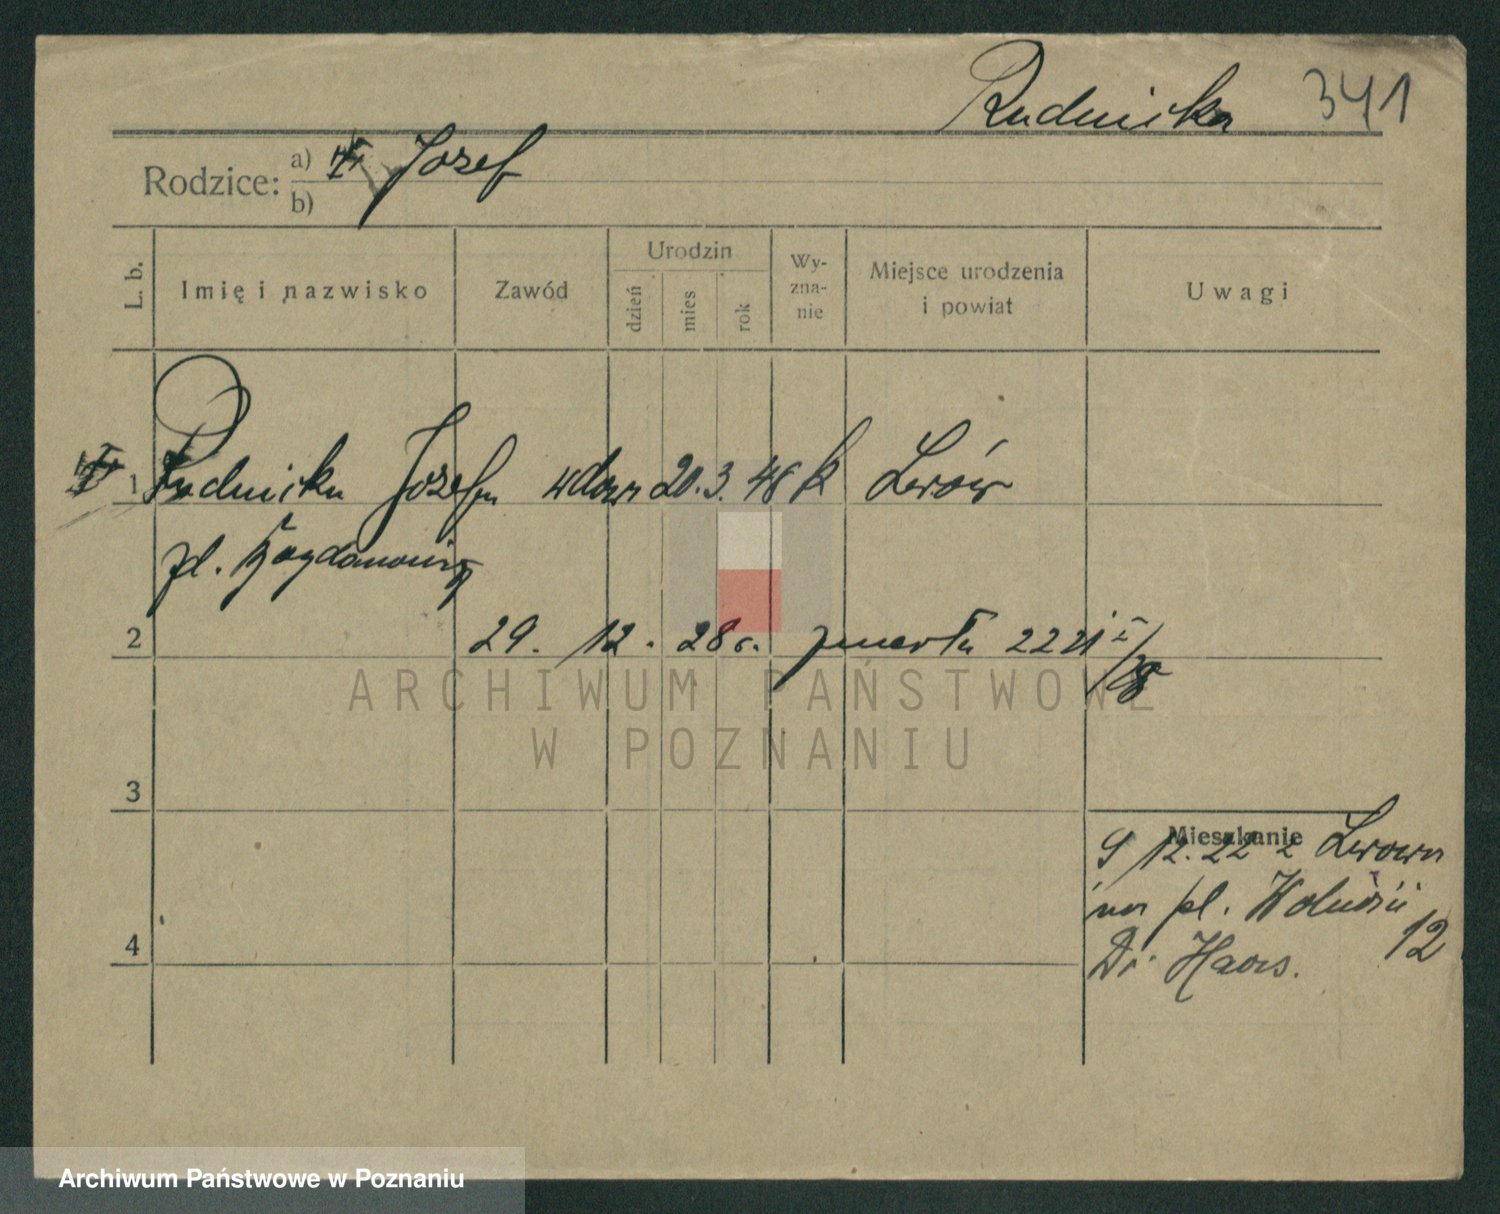 Rudnicka 341
Rodzice: a) Józef
b)
L. b. Imię i nazwisko Zawód Urodzin dzień mies rok Wy-zna-nie Miejsce urodzenia i powiat Uwagi
1 Rudnicka Józefa wdowa 20. 3. 48 k Lwów
zd. Bogdanowicz
2 29. 12. 28 r. zmarła
ARCHIWUM PAŃSTWOWE
W POZNANIU
3
Mieszkanie
9/12. 22 z Lwowa
na pl. Wolności
12
4
Dr Haas.
Archiwum Państwowe w Poznaniu